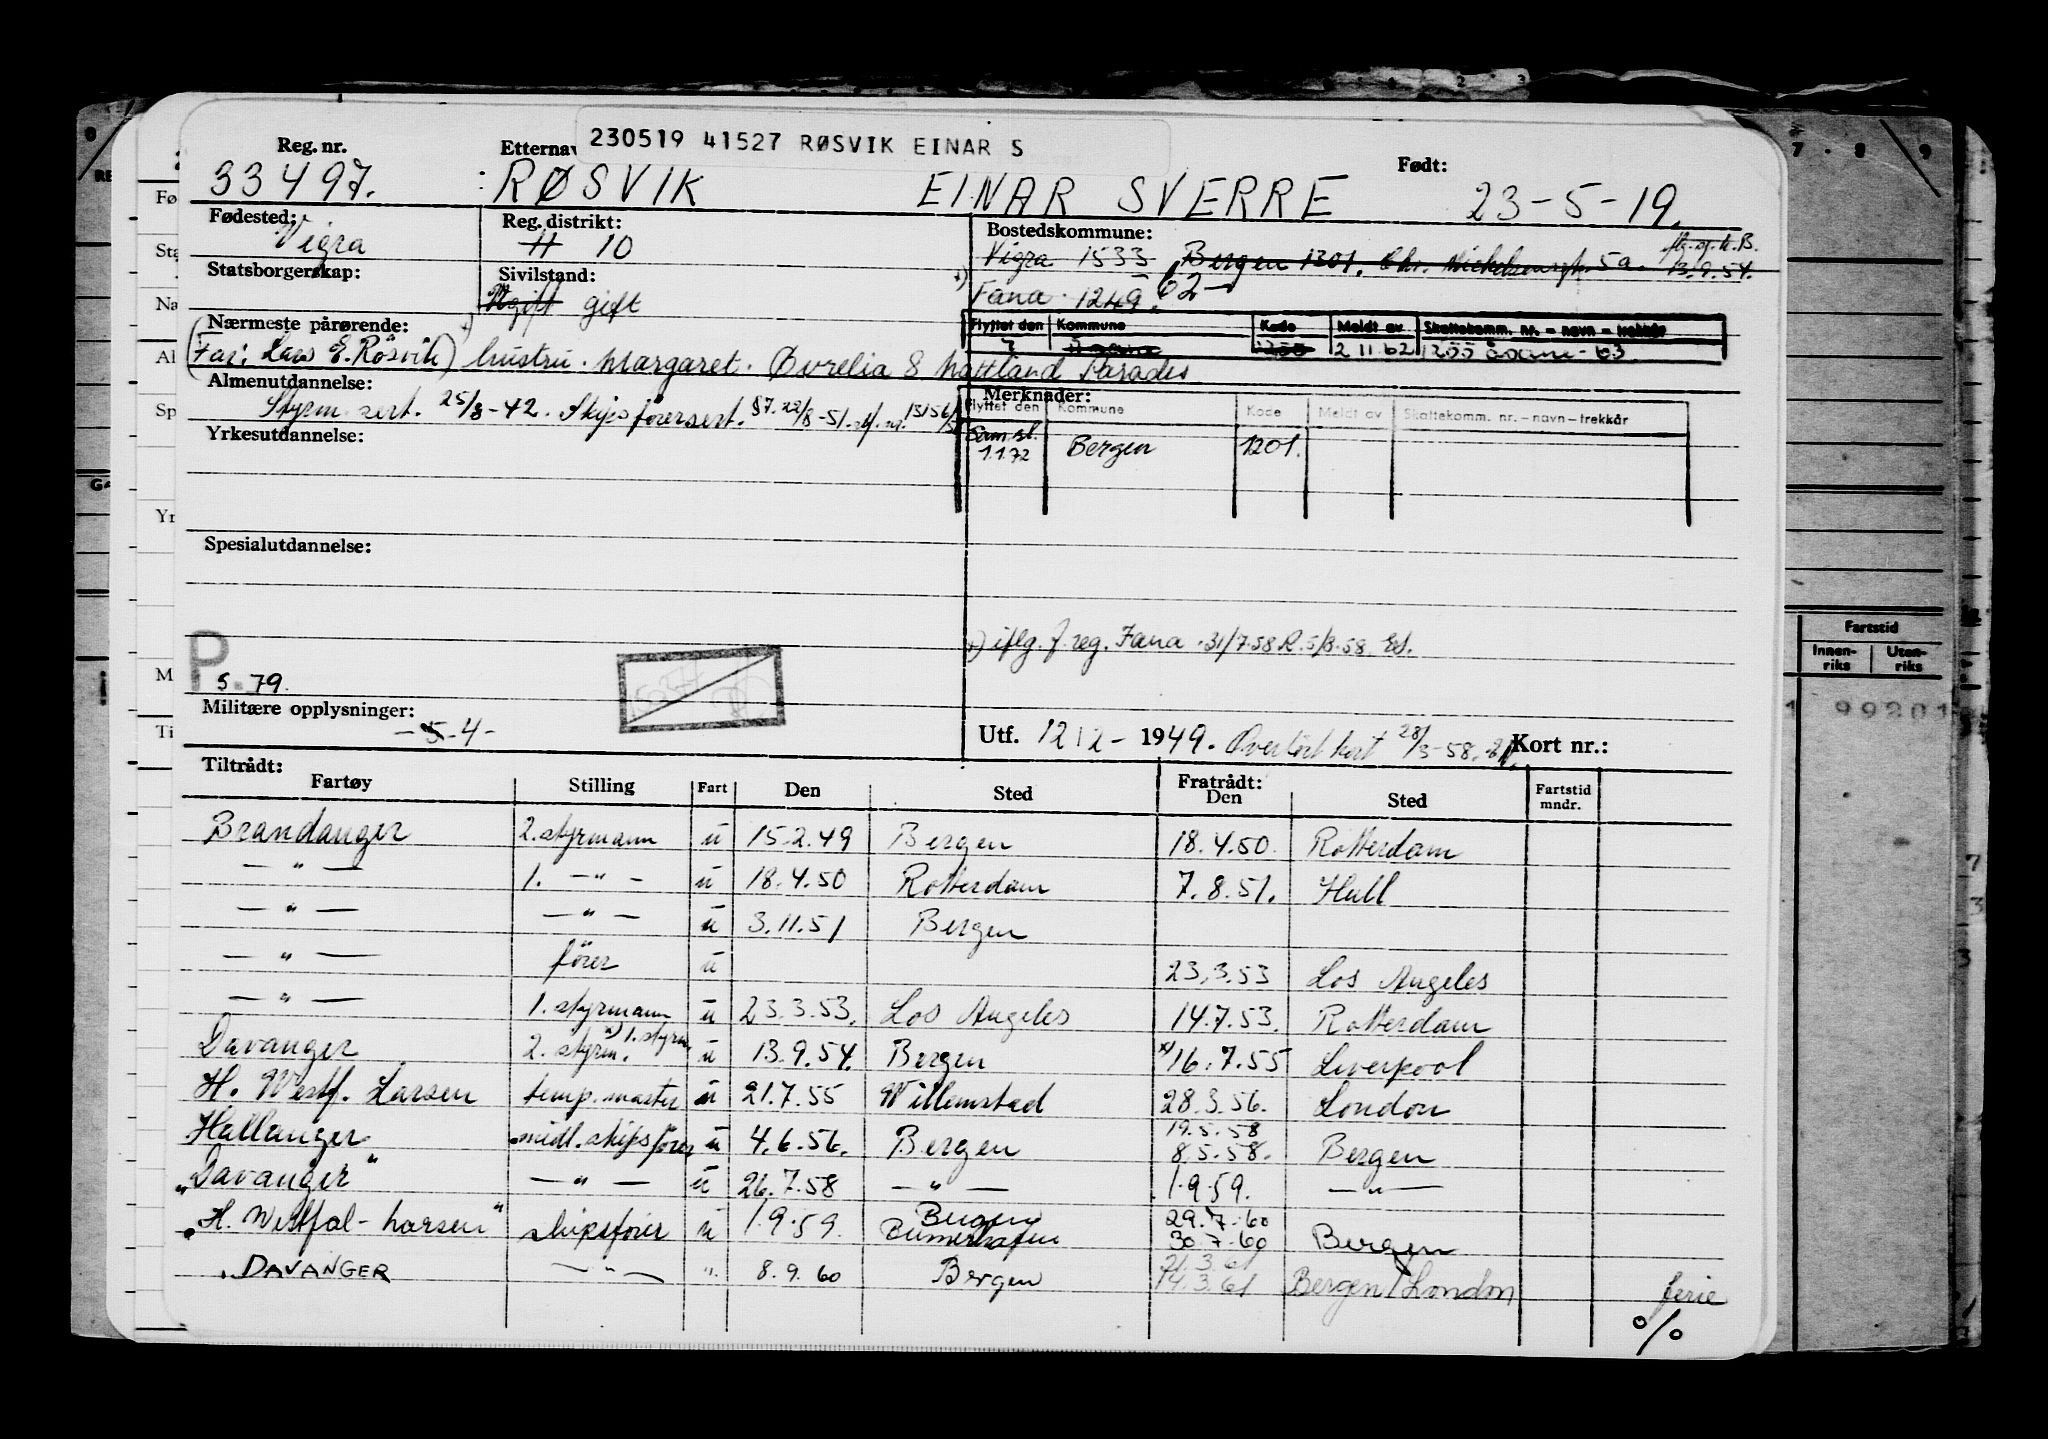 230519 41527 RØSVIK EINAR S
Reg. nr. Etternav Født:
33497. RØSVIK EINAR SVERRE 23-5-19.
Fødested: Reg. distrikt: Bostedskommune:
Vigra H 10 Vigra 1533 Bergen 1301. Chr. Michelsensgt. 5a. 13.9.54.
Statsborgerskap: Sivilstand: Fana 1249.
Ugift gift
Nærmeste pårørende: Flyttet den Kommune Kode Meldt av Skattekomm. nr. – navn – trekkår
2 11 62 1255 Åsane - 63
(Far: Lars E. Rösvik) hustru. Margaret. Aurelia S Nattland Paradis
Almenutdannelse: Merknader:
Styrm. sert. 25/3-42. Skipsförersert. §7. 22/8-51.
Flyttet den Kommune Kode Meldt av Skattekomm. nr. – navn – trekkår
Yrkesutdannelse: Sam. st. 1.1.72 Bergen 1201.
Spesialutdannelse:
iflg. f. reg. Fana. 31/7.58 R. 5/8.58
P.
S 79.
Militære opplysninger:
-5-4-
Utf. 12/2 - 1949. Overført kort 28/3-58. Kort nr.:
Tiltrådt: Fratrådt:
Fartøy Stilling Fart Den Sted Den Sted Fartstid mndr.
Brandanger 2. styrmann u 15.2.49 Bergen 18.4.50. Rotterdam
— " — 1. — " — u 18.4.50 Rotterdam 7.8.51. Hull
— " — — " — u 3.11.51 Bergen
— " — förer u 23.3.53 Los Angeles
— " — 1. styrmann u 23.3.53. Los Angeles 14.7.53. Rotterdam
Davanger 2. styrm. x) 1. styrm. u 13.9.54. Bergen x) 16.7.55 Liverpool
H. Westf. Larsen temp. master u 21.7.55 Willemstad 28.3.56. London
Hallanger midl. skipsförer u 4.6.56. Bergen 19.5.58 8.5.58. Bergen
"Davanger" — " — u 26.7.58 — " — 1.9.59. — " —
"H. Westfal-Larsen" skipsfører u 1.9.59. Bergen 29.7.60 30.7.60 Bergen
DAVANGER — " — " 8.9.60 Bergen 21.3.61 14.3.61 Bergen/London ferie
%
Fartstid
Innen-riks Uten-riks
99201